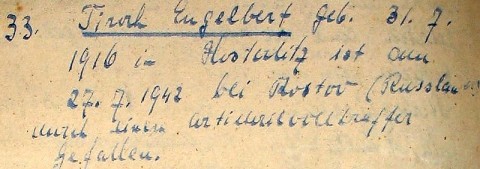 33. Tiroch Engelbert geb. 31. 7.
1916 in Kosteltitz ist am
27. 7. 1942 bei Rostov (Russland)
durch einen Artillerievolltreffer
gefallen.